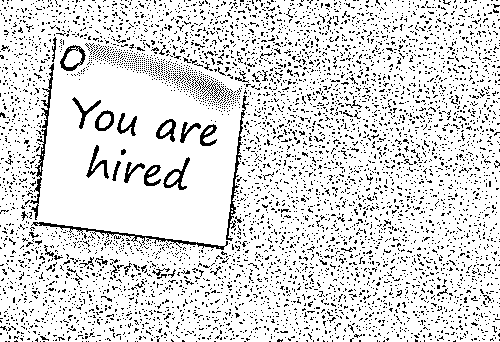 You are
hired